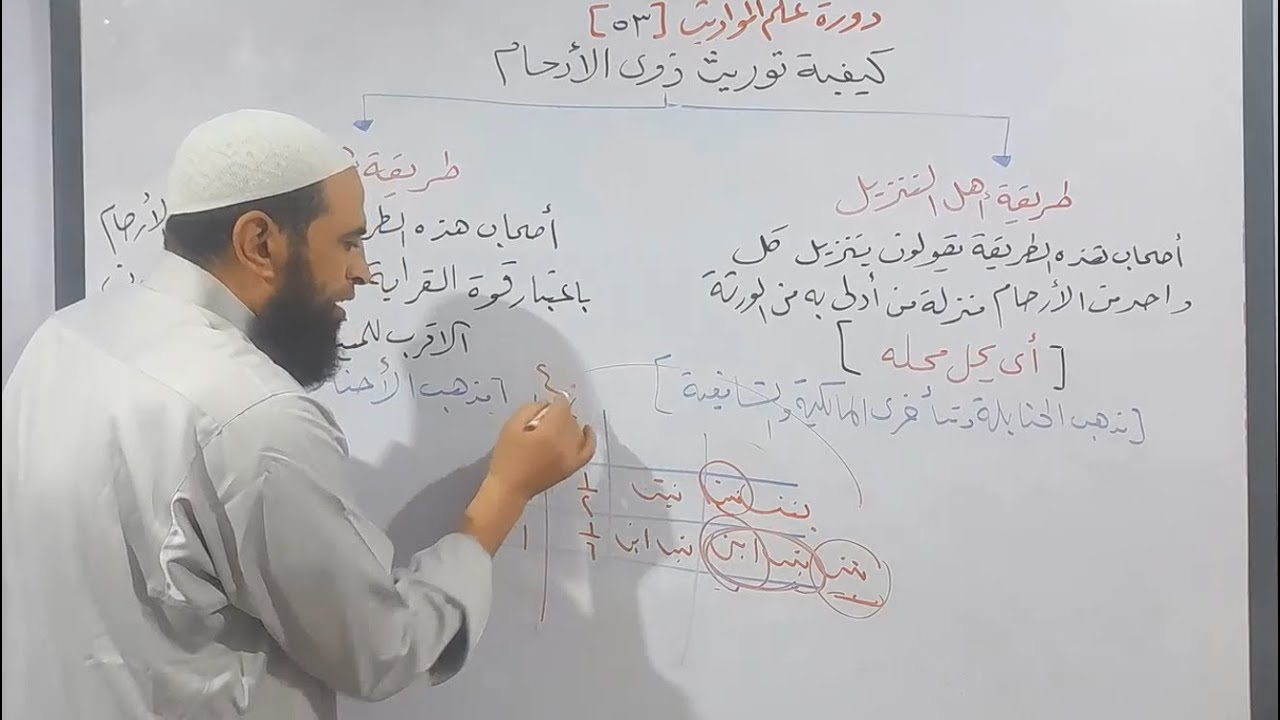 دورة علم المواريث [٥٣]
كيفية توريث ذوى الأرحام
طريقة أهل التنزيل
أصحاب هذه الطريقة يقولون بتنزيل كل
واحد من الأرحام منزلة من أدلى به من الورثة
[أى يحل محله]
[مذهب الحنابلة ومتأخرى المالكية والشافعية]
طريقة
أصحاب هذه الأرحام
باعتبار قوة القرابة
الاقرب
مذهب
٤
بنت بنت بنت ١/٢
بنت بنت ابن بنت ابن ١/٦ ١